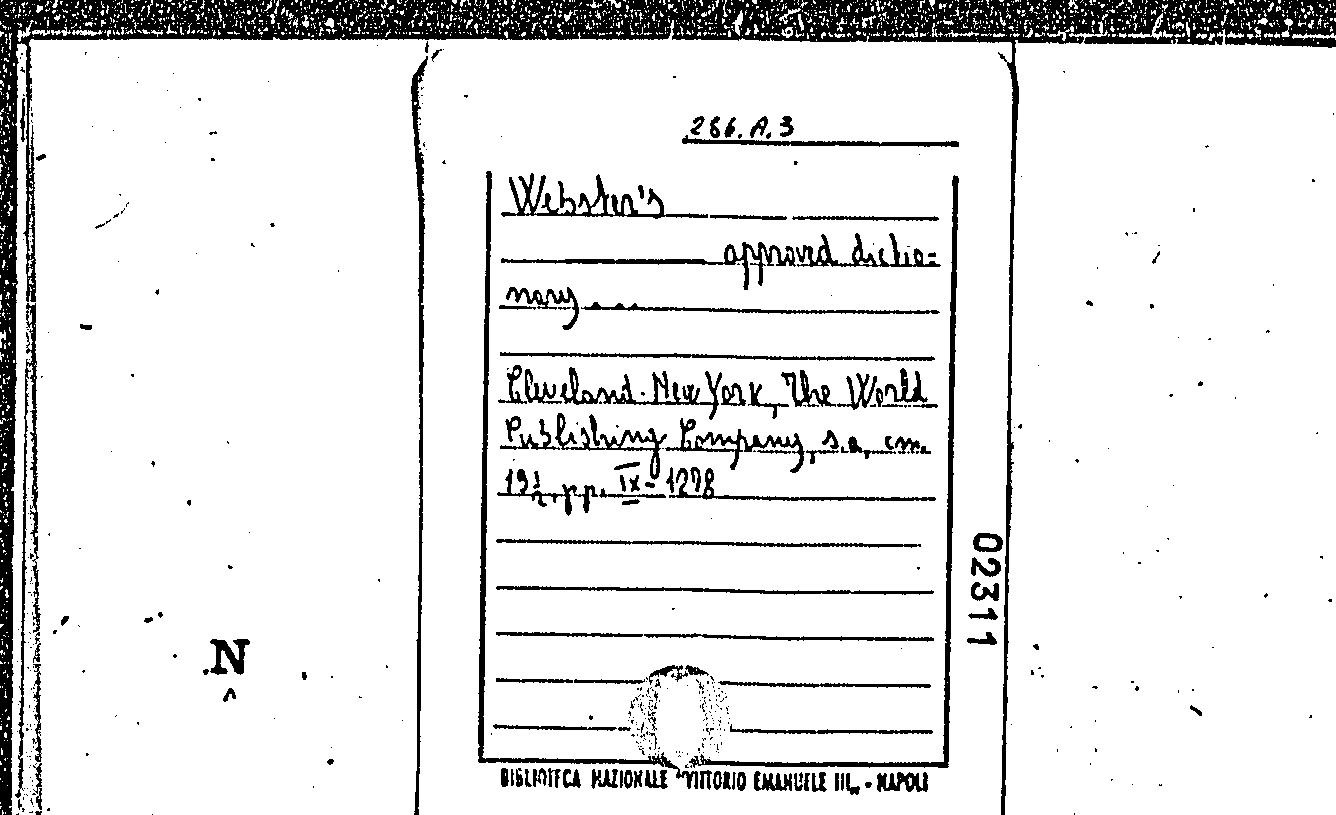 286. A. 3
Webster's
approved dictio=
nary....
Cleveland-New York, The World
Publishing Company, s.a., cm.
19½, pp. IX-1278
02311
N
BIBLIOTECA NAZIONALE "VITTORIO EMANUELE III„ - NAPOLI